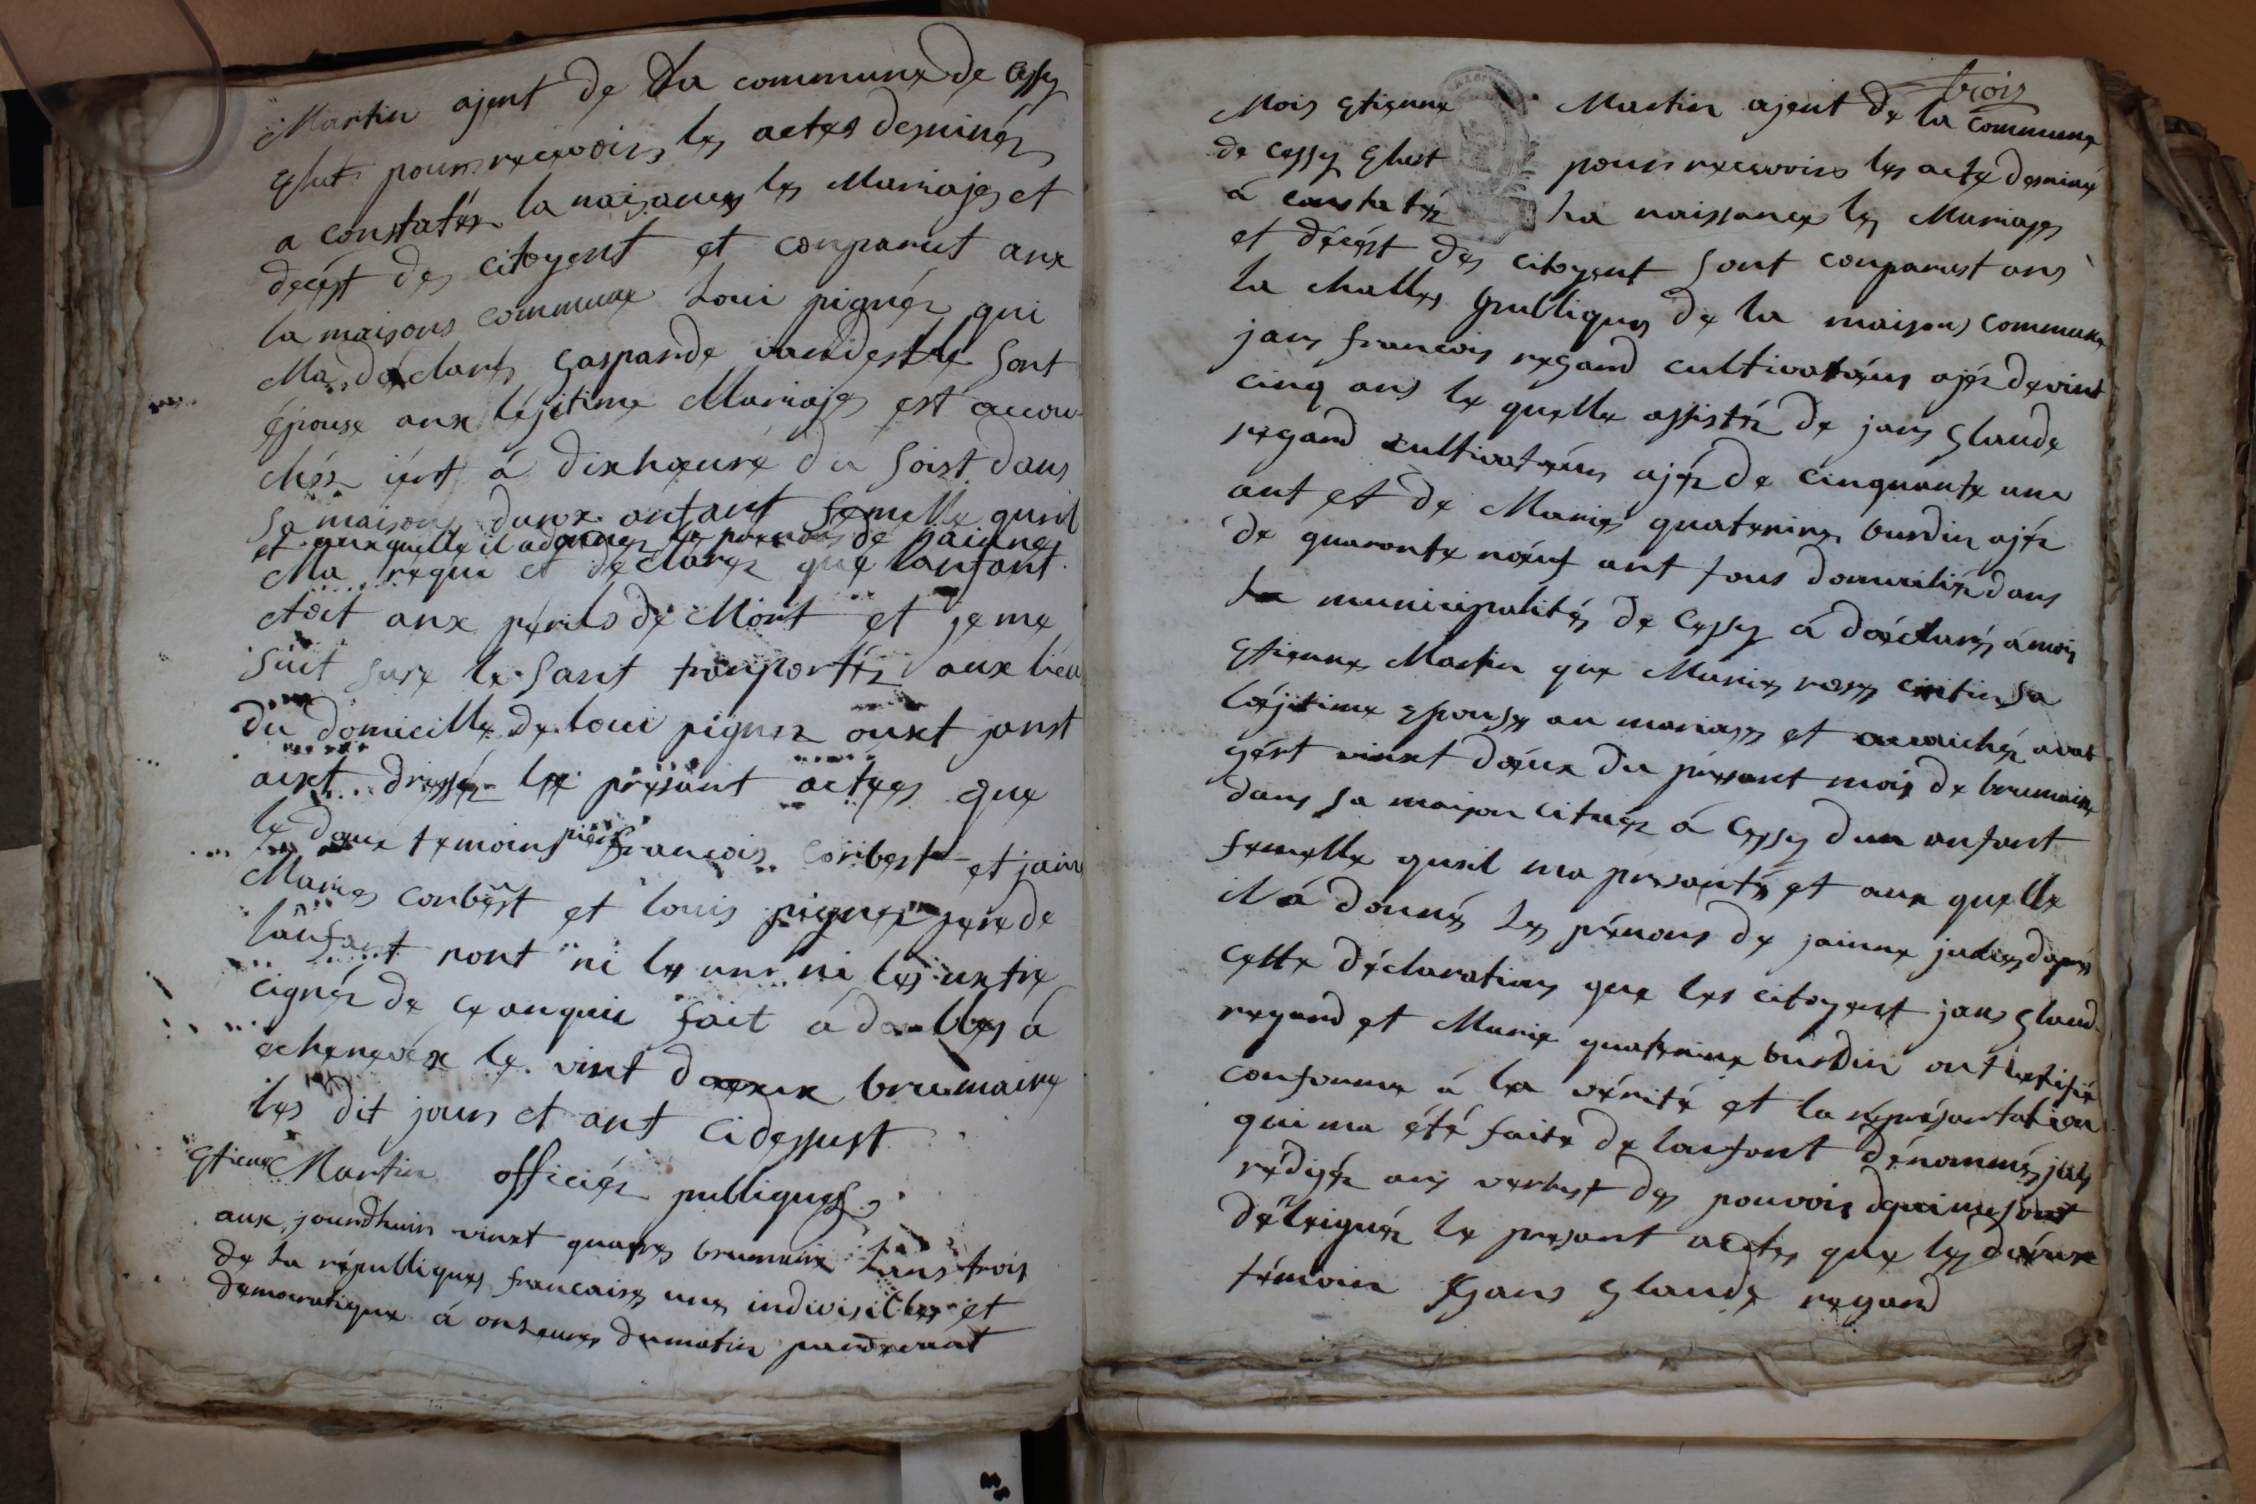 Martin ajent de La commune de Cessy
Elut pour recevoirs les actes desinés
a constatér la naisances les Mariajes et
decést des citoyent et conparut anx
la maisons commune Loui pignéz qui
Ma déclaréz gasparde vandestre sont
épouse anx léjitime Mariajes est accou
chéz iért á dix hœure du soist dans
sa maisons dunx anfant femelle qusil
et auxquelle il adonnez le prenons de jainne
Ma requi et déclarez que lanfant
étoit anx périls de Mort et je me
suit surx le sant transportéz aux lieu
du domicille de loui pignez ouxt janst
aixt dresséz lxe présant actxes que
le doux temoins pierre francois Corbest et jain
Maries corbest et louis pignez perx de
lanfant nont ni les uns ni les uxtrx
cignéz de ce anquis fait á doubles á
echenevéx le vint doxxux brumaire
les dit jours et ant cidessust
Etiene Martin officiéz publiques
aux jourdhuis vinxt quatres brumaire Lans trois
de la républiques francaises unes indivisibles et
démocratique á onseures dumatin pardevant
trois
Mois Etienne Martin ajent de la Commune
de cessy Elust pour recevoirs les acte desiné
á constatéz La naissances les Mariages
et décést des citoyent sont conparust ans
la challes publiques de la maisons commune
jans francois regard cultivatéurs ajéz de vint
cinq ans le quelle assistéz de jans glaude
regard cultivatéurs ajéz de cinquante uns
ant et de Maries quaterines burdin ajéz
de quarante nœuf ant tous domiciliéz dans
la municipalités de Cessy á déclaréz á mois
Etienne Martin que Maries roses sa
léjitime Epouse an mariages et accouchéz avat
yért vinxt dœux du présent mois de brumaire
dans sa maison cituéz á Cessy dun anfant
femelle qusil ma présantéz et aux quelle
il á donnéz les prénons de jainne judies daprés
cette déclarations que les citoyent jans glaud
regard et Marie quaterine burdin ont certifié
conforme á la vérité et la réprésantation
qui ma été faite de lanfant dénommés jais
rédigéz ans vertust des pouvois qui me sont
déléiguéz le présant actes que les dœux
témoin jans glaude regard